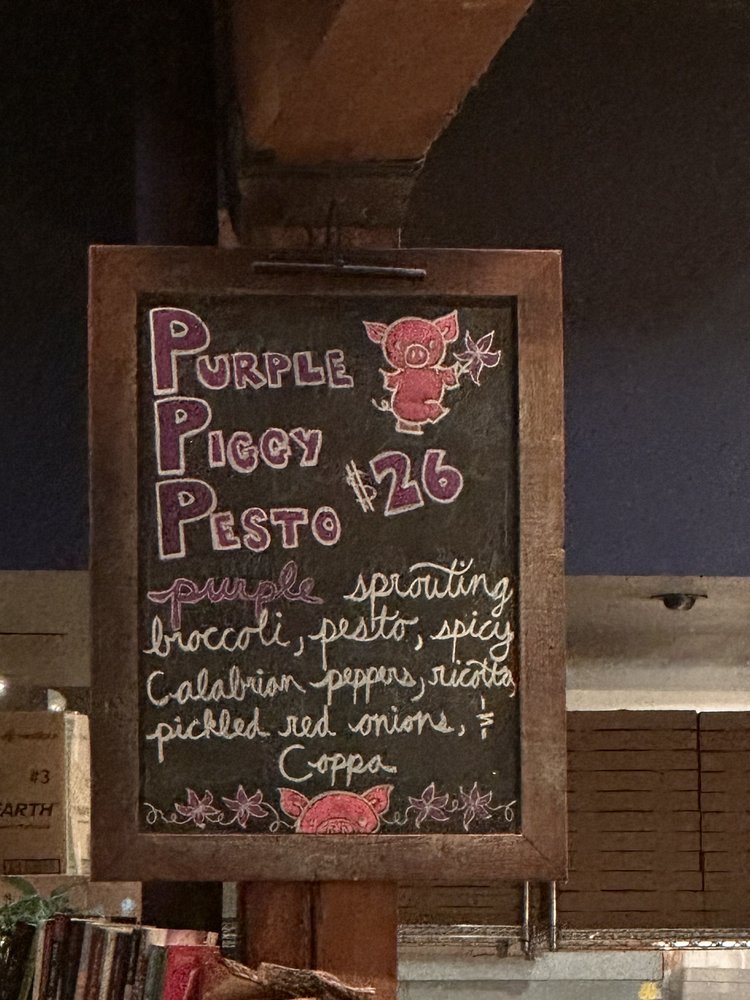 PURPLE
PIGGY
PESTO
$26
purple sprouting
broccoli, pesto, spicy
Calabrian peppers, ricotta,
pickled red onions, &
Coppa
#3
EARTH